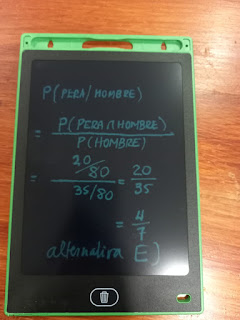 P(PERA/HOMBRE)
= P(PERA∩HOMBRE)
P(HOMBRE)
= 20/80 = 20
35/80 35
= 4
7
alternativa E)